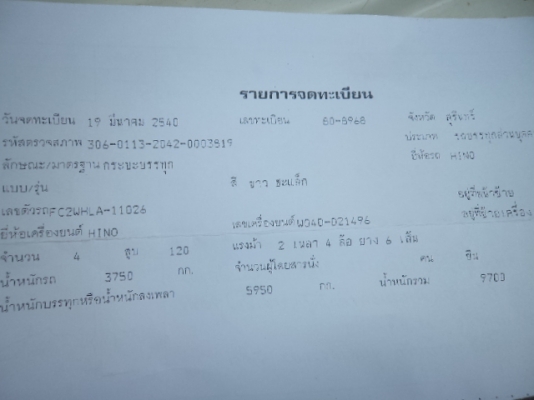 รายการจดทะเบียน
วันจดทะเบียน 19 มีนาคม 2540 เลขทะเบียน 80-8968 จังหวัด สุรินทร์
รหัสตรวจสภาพ 306-0113-2042-0003819 ประเภท รถบรรทุกส่วนบุคคล
ลักษณะ/มาตรฐาน กระบะบรรทุก ยี่ห้อรถ HINO
แบบ/รุ่น สี ขาว
เลขตัวรถ FC2WHLA-11026 อยู่ที่หน้าซ้าย
ยี่ห้อเครื่องยนต์ HINO เลขเครื่องยนต์ WO4D-021496 อยู่ที่ซ้ายเครื่อง
จำนวน 4 สูบ 120 แรงม้า 2 เพลา 4 ล้อ ยาง 6 เส้น
น้ำหนักรถ 3750 กก. จำนวนผู้โดยสารนั่ง คน ยืน
น้ำหนักบรรทุกหรือน้ำหนักลงเพลา 5950 กก. น้ำหนักรวม 9700